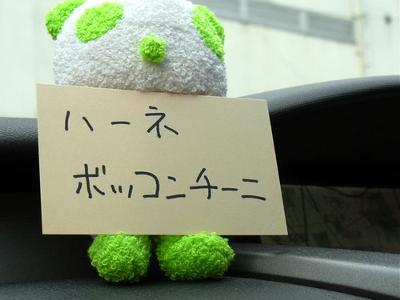 ハーネ
ボッコンチーニ